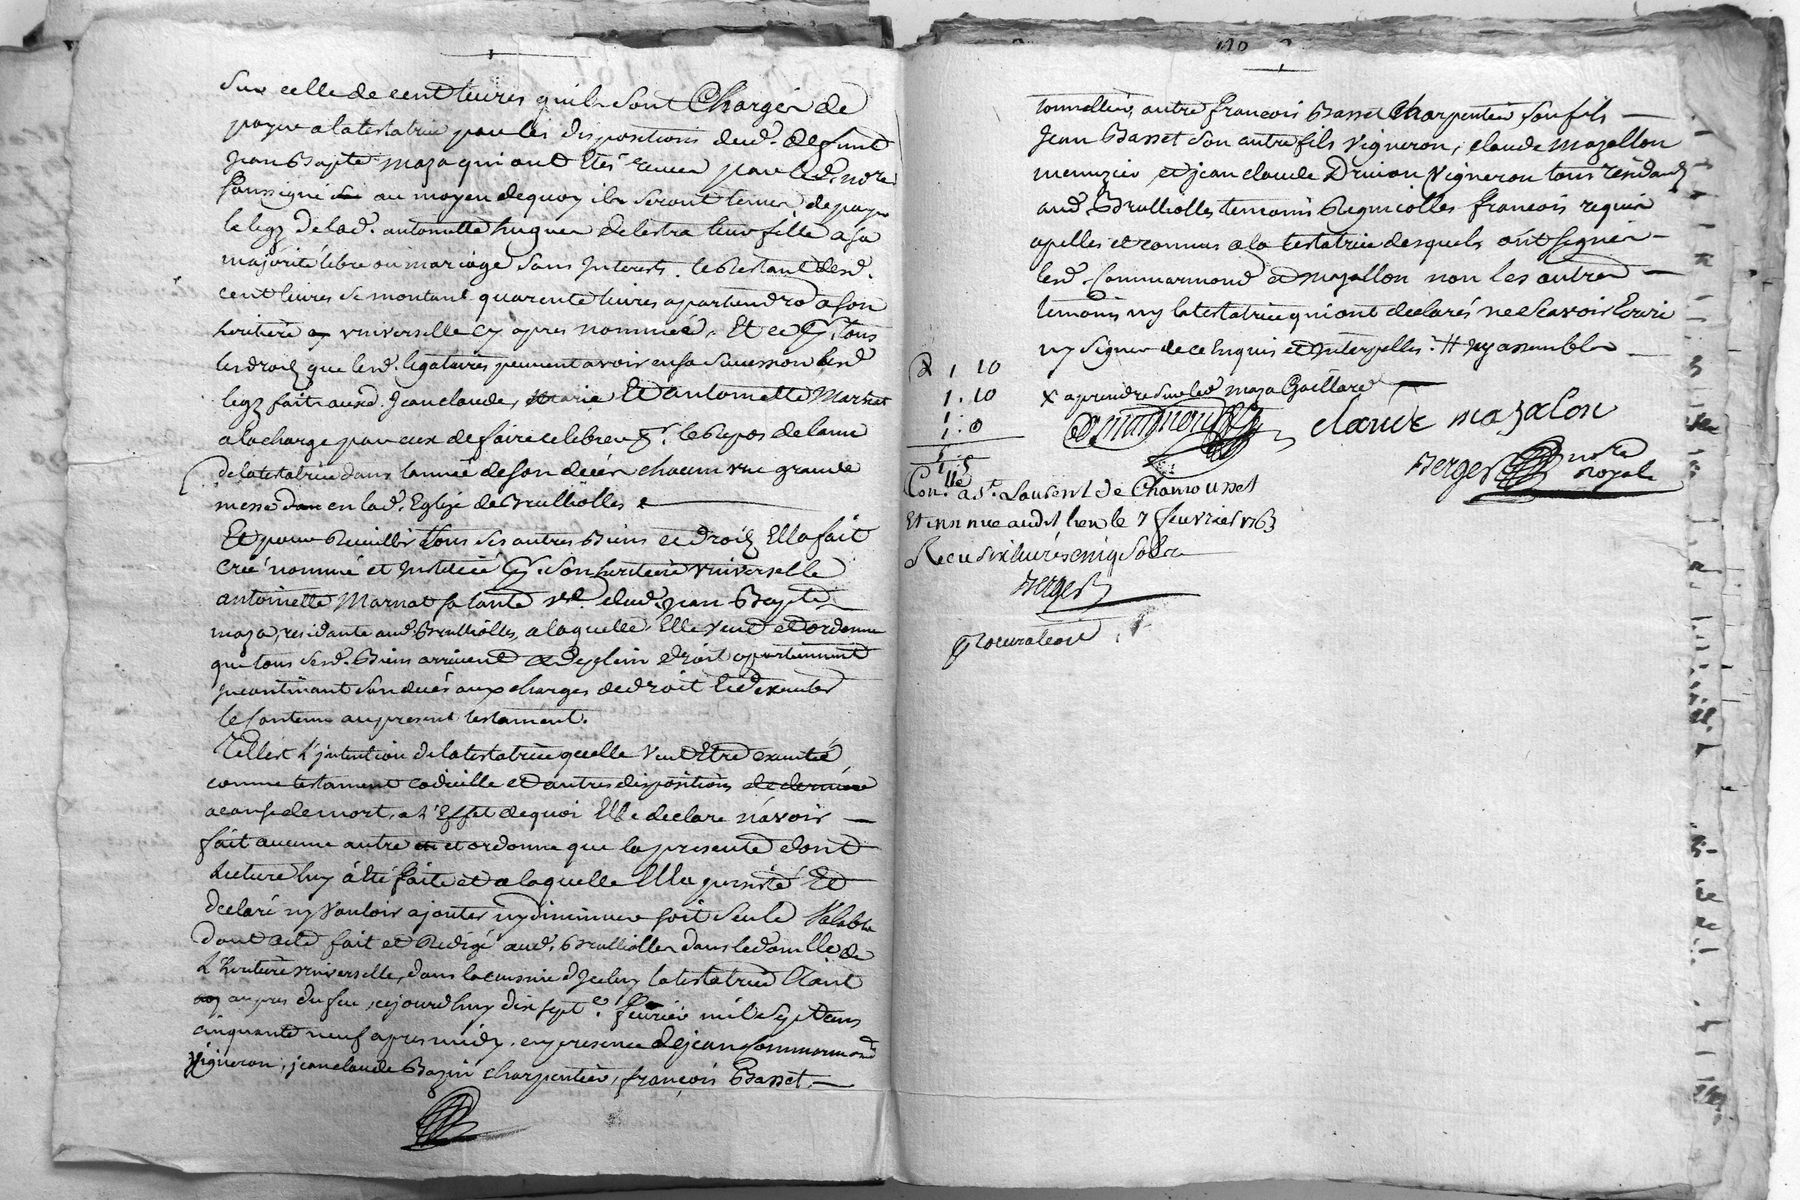 Sur celle de cent livres qu'ils sont Chargés de
payer a la testatrice par les dispositions dud. deffunt
Jean Bapte maza qui ont Etés receu par led. nore
soussigné au moyen de quoy ils seront tenus de payer
le legz de lad. antoinette huguer de lestra leur fille a sa
majorité libre ou mariage sans Interests. le Restant desd.
cent livres se montant quarente livres apartiendra a son
heritiere universelle cy apres nommée. Et ce pr. tous
les droits que lesd. legataires peuvent avoir en sa succession lesd.
legz faits auxd. Jean claude, marie Et antoinette Marnat
a la charge par eux de faire celebrer pr. le Repos de lame
de la testatrice dans l'année de son décés chacun une grande
messe en lad. Eglise de Brulliolles
Et pour Recuillir tous ses autres Biens et droits Ella fait
Créé nommé et Institué pr. son heritiere universelle
antoinette Marnat sa tante ve. dud. Jean Bapte
maza, residante aud. Brulliolles, a laquelle Elle veut et ordonne
que tous sesd. Biens arrivent de plein droit apartiennent
Incontinant son decés aux charges de droit Et d'executer
le Contenu au present testament.
Telle est L'intention de la testatrice quelle veut Etre executée
comme testament codicille et autres dispositions de derniere
a cause de mort, a L'Effet de quoi Elle declare n'avoir
fait aucune autre et ordonne que la presente dont
lecture luy a été faite et a laquelle Ella persisté Et
declaré ny vouloir ajouter ny diminuer soit seule Valable
Dont acte fait et Redigé aud. Brulliolles dans le domicille de
L'heritiere universelle, dans la cuisine d'Iceluy la testatrice Etant
aupres du feu, cejourd'huy dix sept fevrier mil sept cens
cinquante neuf apres midy, en presence de jean Commarmond
Vigneron, jean claude Bazin charpentier, françois Basset
tonnellier, autre françois Basset Charpentier son fils
Jean Basset son autre fils vigneron, claude mazallon
menuzier et jean claude Drivon Vigneron tous résidants
aud. Brulliolles temoins Regnicolles francois requis
apellés et connus a la testatrice desquels ont signés
lesd. Commarmond et mazallon non les autres
temoins ny la testatrice qui ont declarés ne sçavoir Ecrire
ny signer de ce Enquis et Interpellés.
1, 10
1. 10
1. 0
x a prendre sur led. maza Gaillard
Commarmond claude mazalon
Berger nore Royal
Con. a St. Laurent de Chamousset
Et insinué audit lieu le 7 fevrier 1763
Recu six livres cinq sols
Berger
procuration